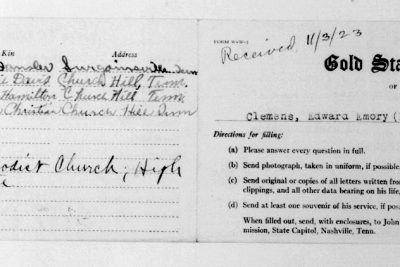 Kin Address
Surgoinsville Tenn
Davis Church Hill, Tenn.
Hamilton Church Hill Tenn.
Christian Church Hill Tenn
odist Church, High
FORM
Received 11/3/23
Gold Sta
OF
Clemens, Edward Emory (
Directions for filling:
(a) Please answer every question in full.
(b) Send photograph, taken in uniform, if possible.
(c) Send original or copies of all letters written from
clippings, and all other data bearing on his life,
(d) Send at least one souvenir of his service, if possi
When filled out, send, with enclosures, to John
mission, State Capitol, Nashville, Tenn.